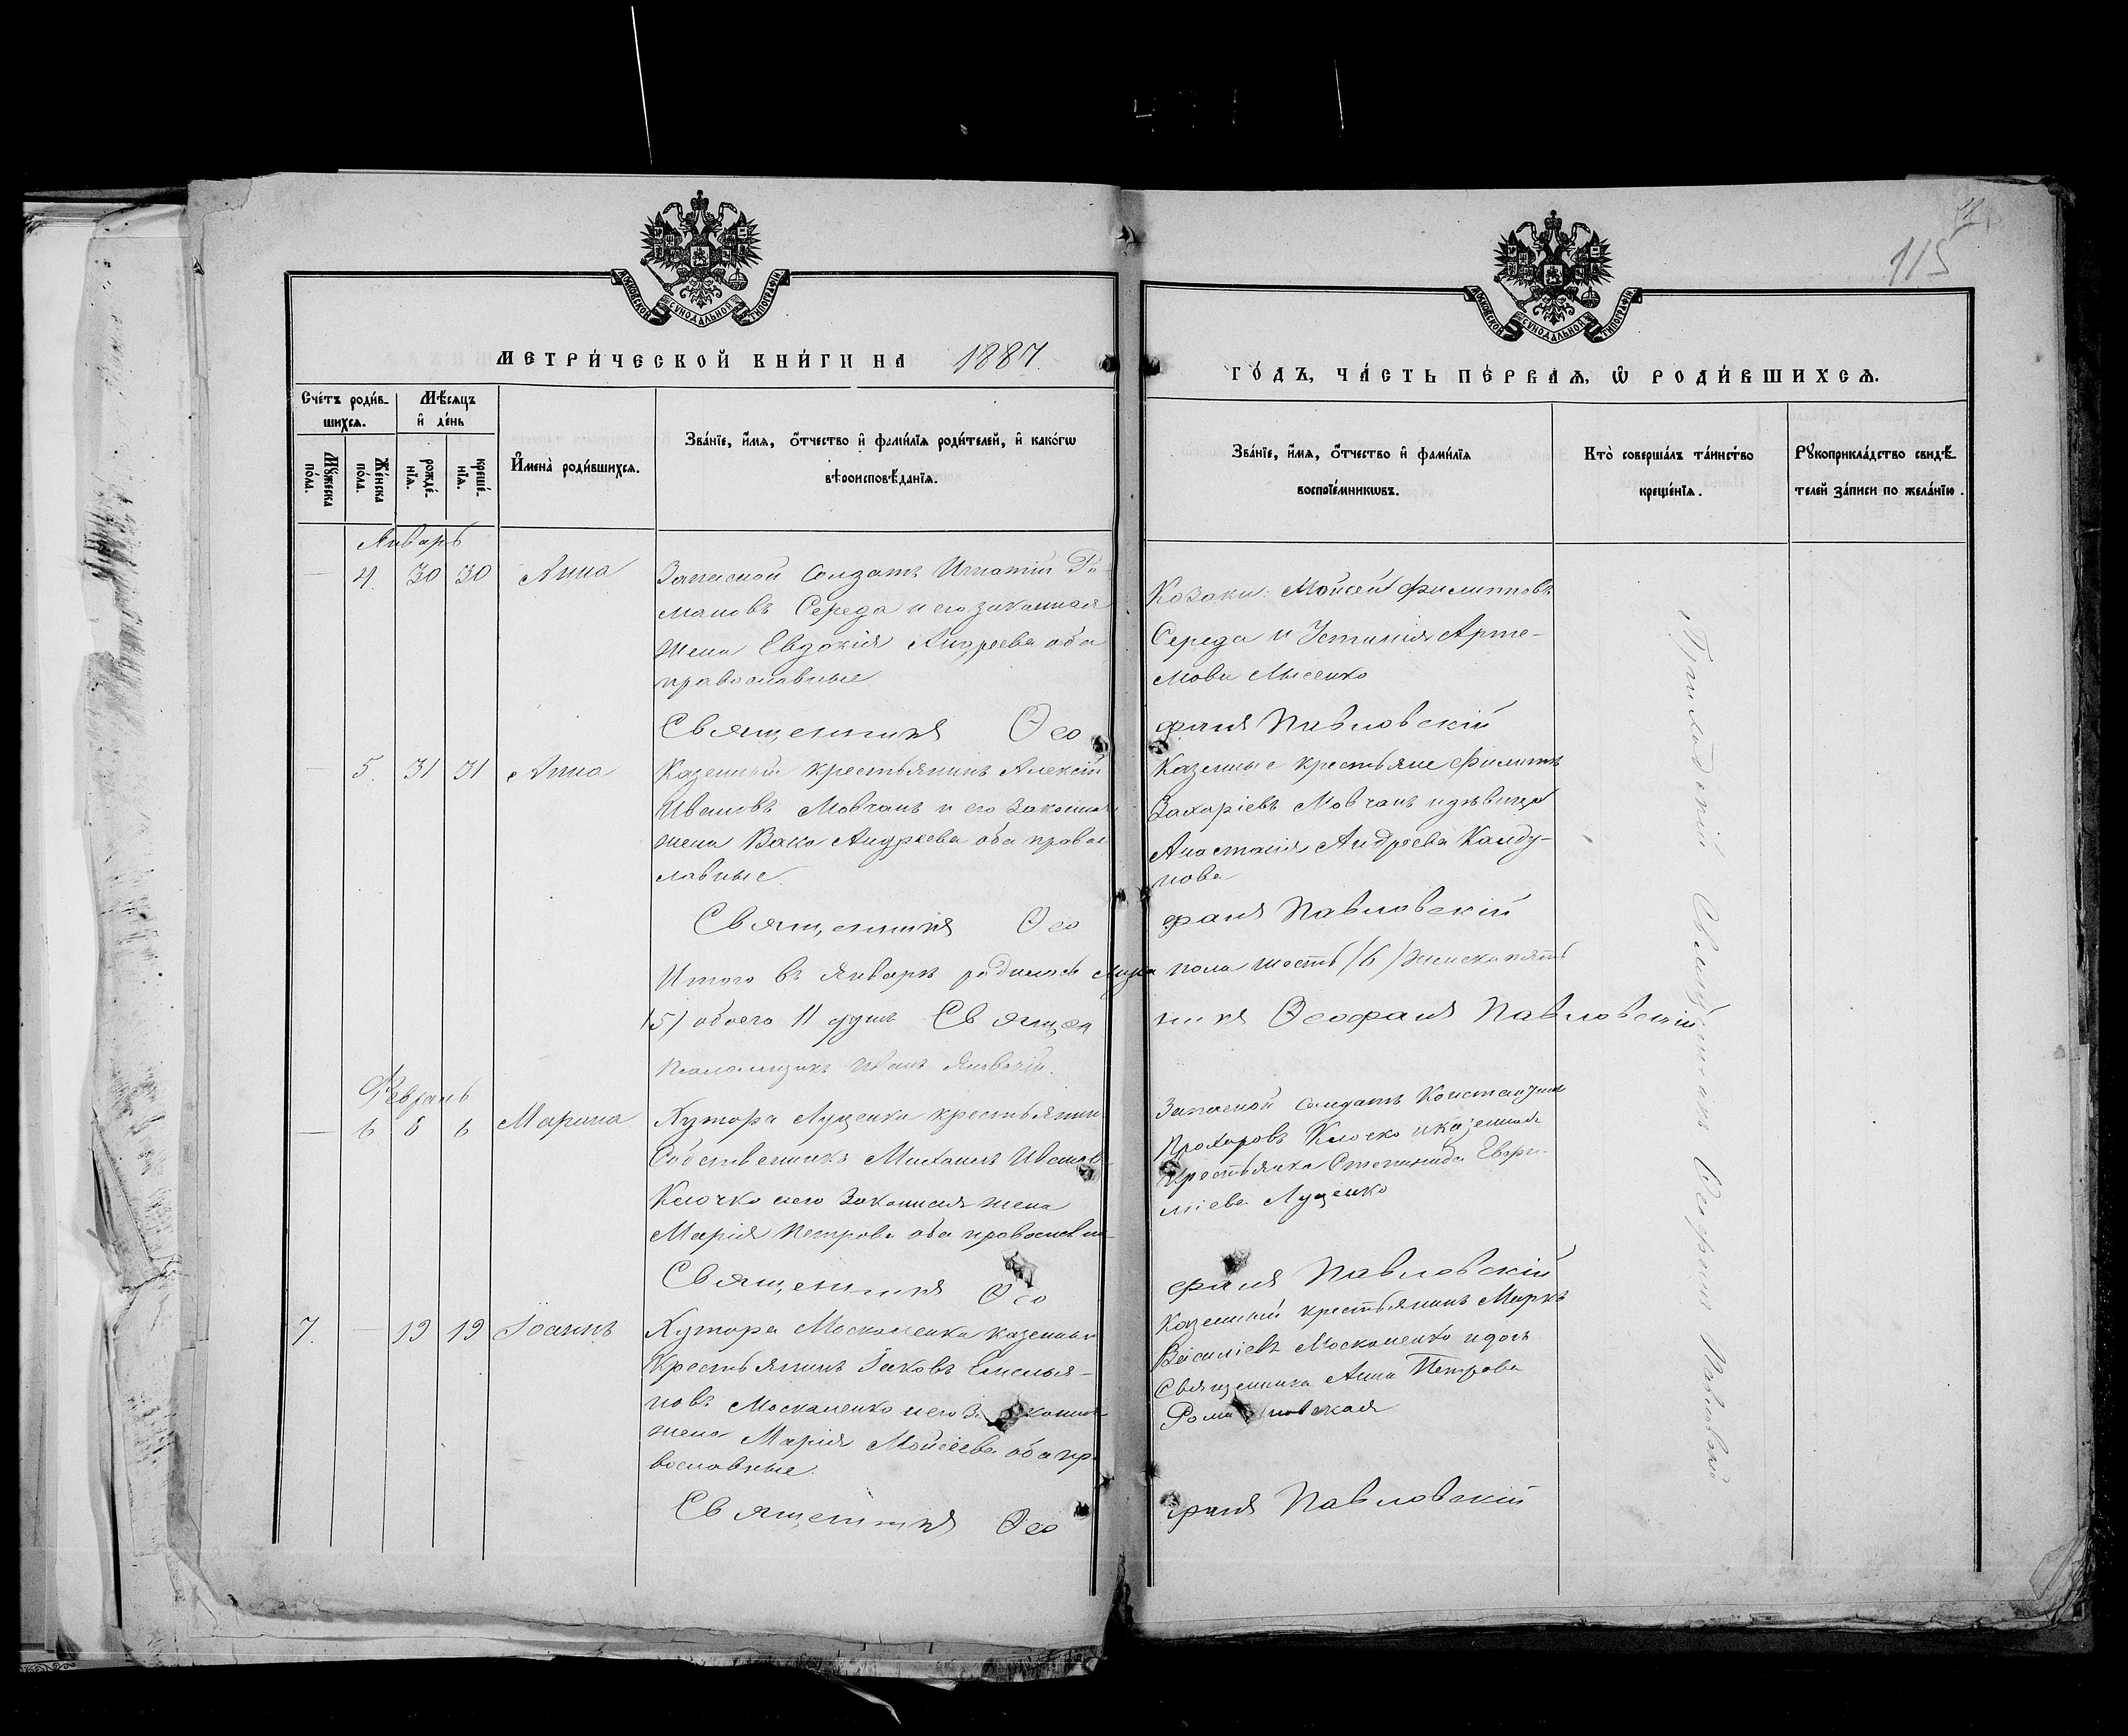 115
МОСКОВСКОЙ СѴНОДАЛЬНОЙ ТИПОГРАФІИ
МОСКОВСКОЙ СѴНОДАЛЬНОЙ ТИПОГРАФІИ
МЕТРИ́ЧЕСКОЙ КНИ́ГИ НА 1887.
ГО́ДЪ, ЧА́СТЬ ПЕ́РВАѦ, Ѽ РОДИ́ВШИХСѦ.
Сче́тъ роди́в-
шихсѧ.
Мѣ́сяцъ
и҆ де́нь
Мꙋ́жеска
по́ла.
Же́нска
по́ла.
рожде́-
нїѧ.
креще́-
нїѧ.
И҆мена̀ роди́вшихсѧ.
Зва́нїе, и҆́мѧ, ѻ҆́тчество и҆ фамѝлїѧ роди́телей, и҆ како́гѡ
вѣроисповѣ́данїѧ.
Зва́нїе, и҆́мѧ, ѻ҆́тчество и҆ фами́лїѧ
воспрїе́мникѡвъ.
Кто̀ соверша́лъ та́инство
креще́нїѧ.
Рꙋкоприкла́дство свидѣ́-
телей за́писи по жела́нїю.
Январь
— 4. 30 30 Анна
Запасной Солдатъ Игнатій Ро-
мановъ Середа и его законная
жена Евдокія Андреева оба
православные
Козаки: Мойсей Филипповъ
Середа и Устинія Арте-
мова Лысенко
Священникъ Ѳео фанъ Павловскій
— 5. 31 31 Анна
Казенный крестьянинъ Алексій
Ивановъ Мовчанъ и его законная
жена Андреева оба правос
лавные
Казенные крестьяне Филиппъ
Захаріевъ Мовчанъ и дѣвица
Анастасія Андреева Канду-
нова
Священникъ Ѳео фанъ Павловскій
Итого въ Январѣ родилось муж пола шесть (6) женска пять
(5) обоего 11 душъ Священ никъ Ѳеофанъ Павловскій
Псаломщикъ Иванъ
Февраль
— 6 6 6 Марина
Хутора Луценки крестьянин
Собственникъ Михаилъ Иванов
Клочко и его законная жена
Марія Петрова оба православн
Запасной солдатъ Константинъ
Прохоровъ Клочко и казенная
крестьянка Степанида Еври-
міева Луценко
Священникъ Ѳео фанъ Павловскій
7. — 19 19 Іоаннъ
Хутора Москаленка казенный
Крестьянинъ Іаковъ Емелья-
новъ Москаленко и его законная
жена Марія Мойсеева оба пра
вославные.
Казенный крестьянинъ Маркъ
Василіевъ Москаленко и дочь
Священника Анна Петрова
Романовская
Священникъ Ѳео фанъ Павловскій
Приходскій Священникъ Ѳеофанъ Павловскій